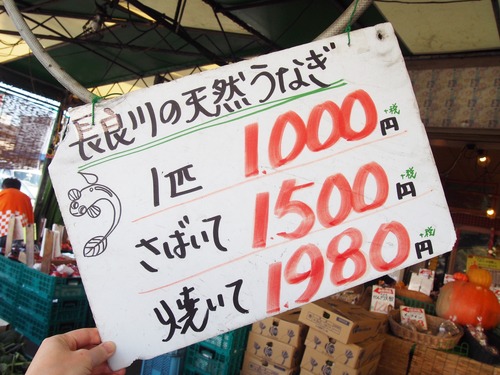 長良川の天然うなぎ
1匹 1.000円 +税
さばいて 1.500円 +税
焼いて 1.980円 +税